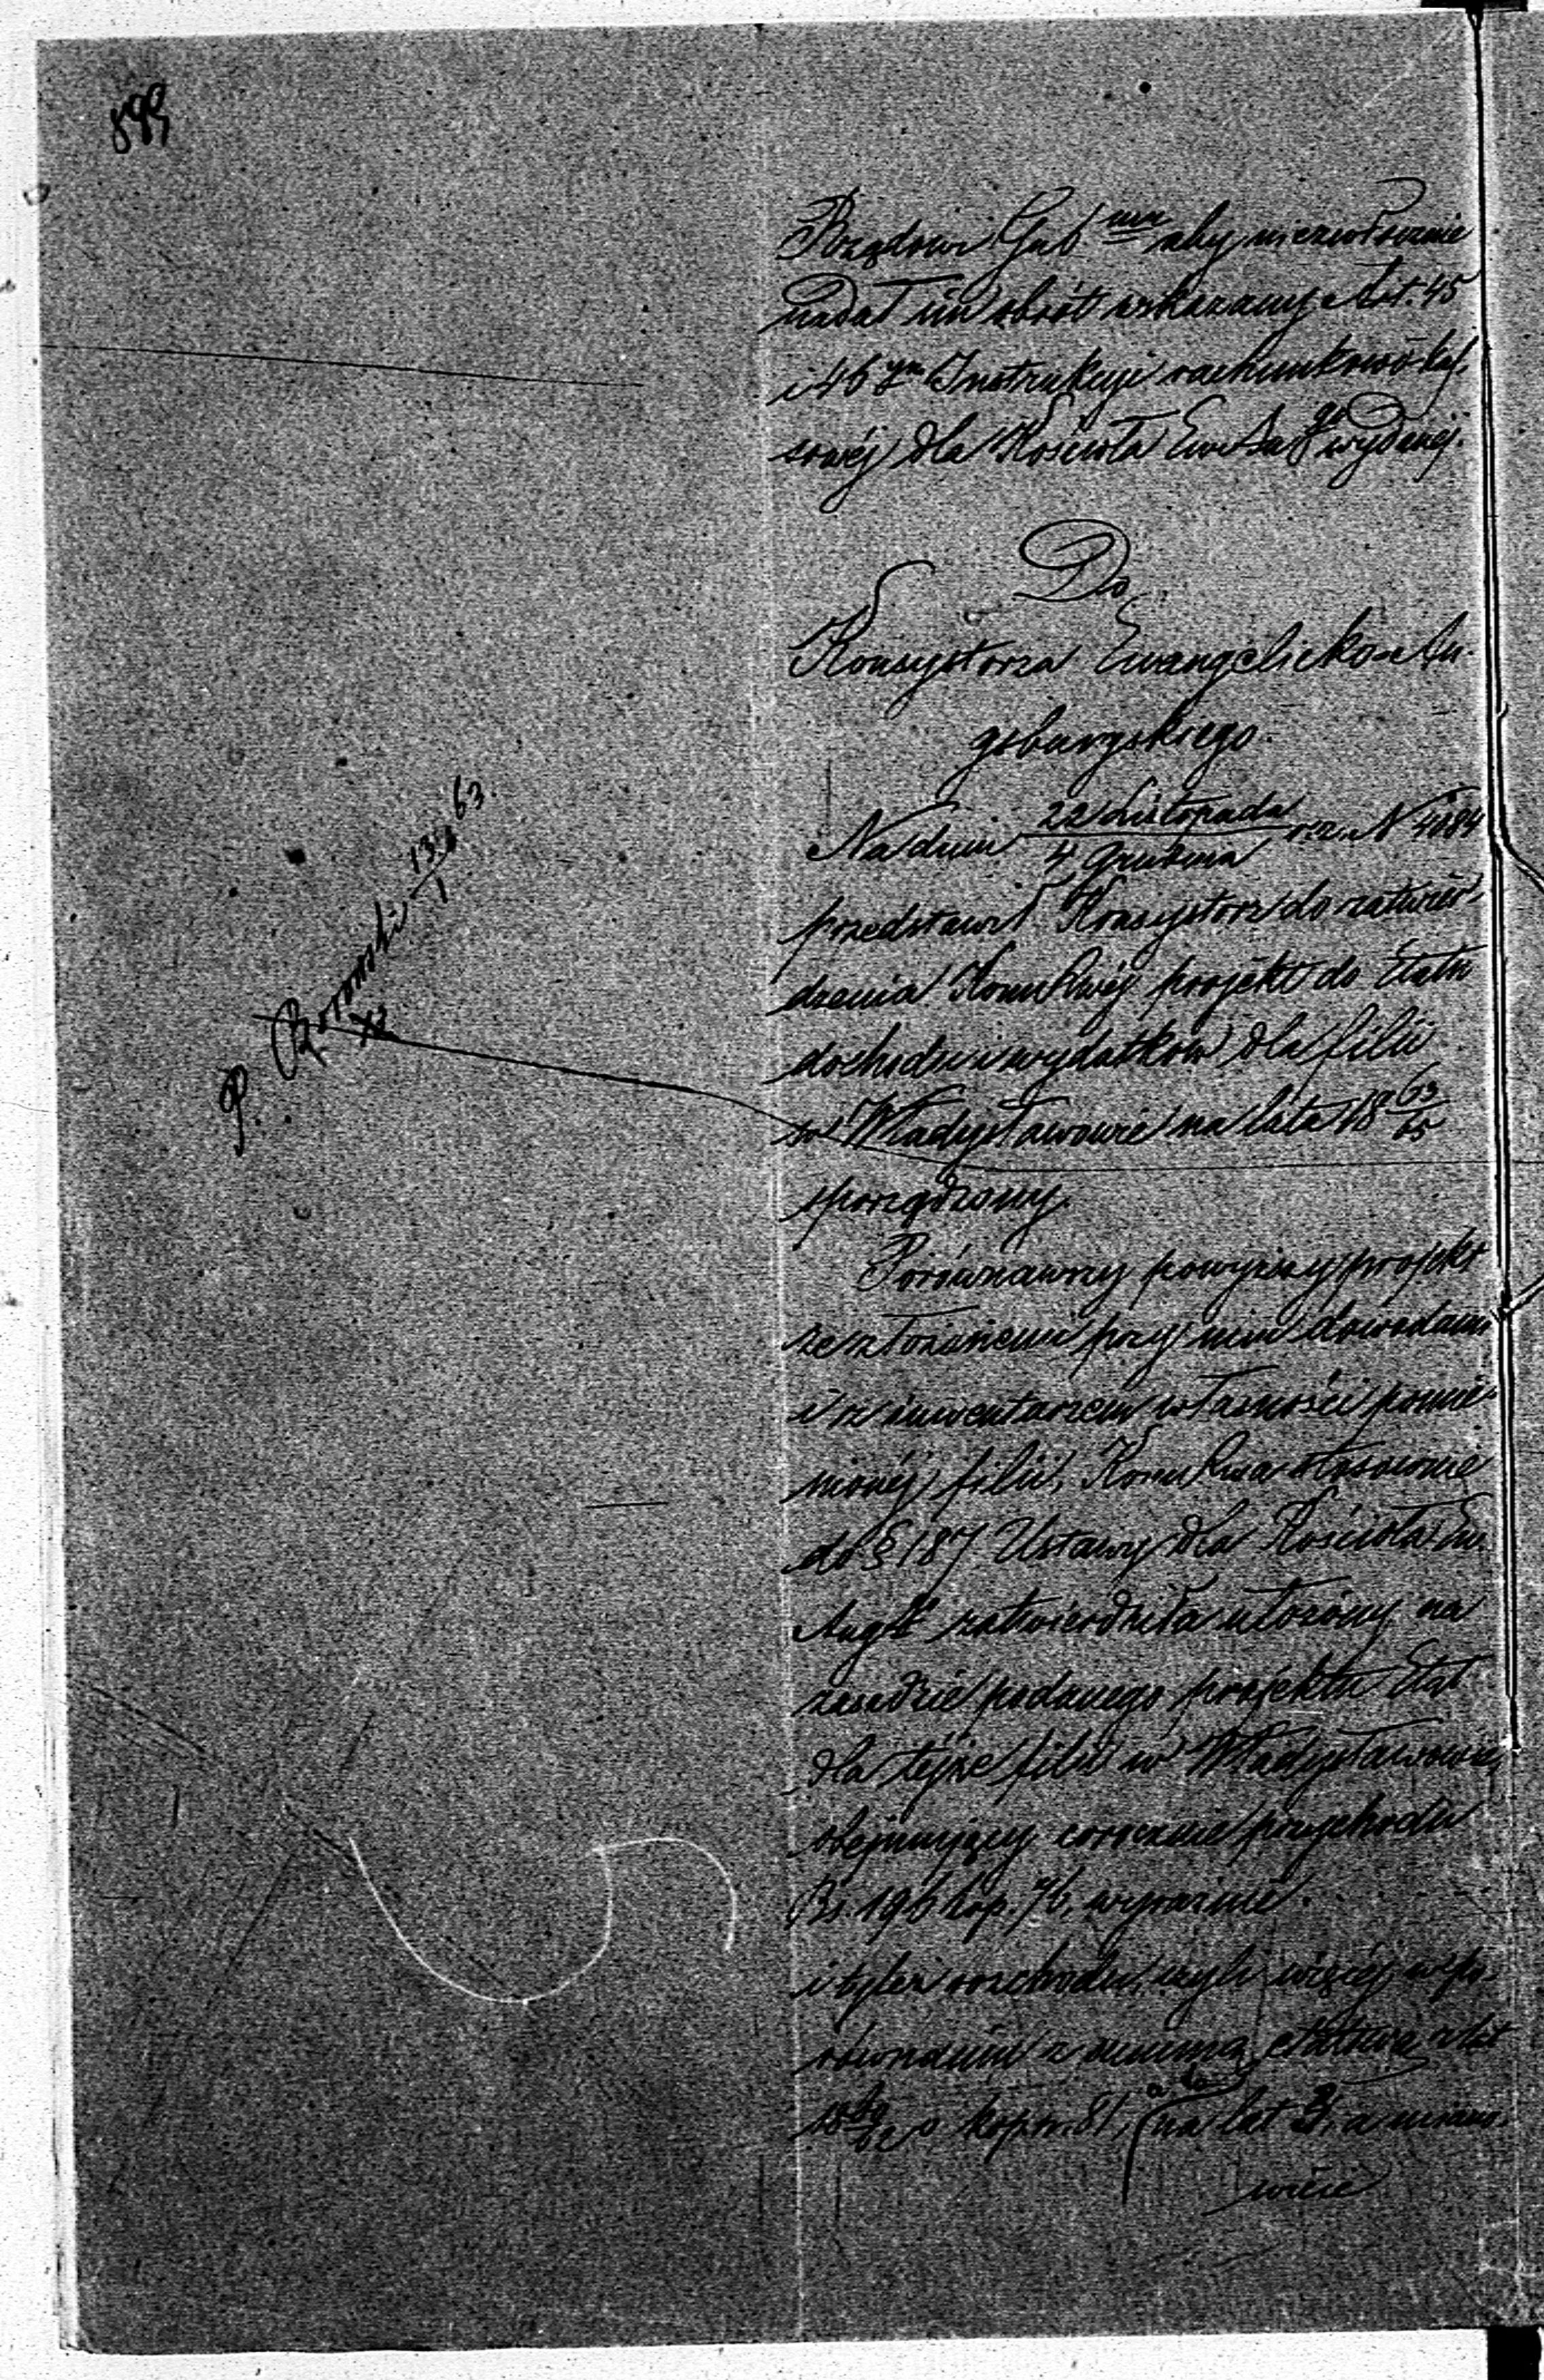 899
Rządowi Gub. mu aby niezwłocznie
nadał im obrót wskazany Art. 45
i 46 ym Instrukcyi rachunkowo-kas-
sowéj dla Kościoła Ew. Aug go wydanej.
Do
Konsystorza Ewangelicko-Au-
gsburgskiego.
Na dniu 22 Listopada / 4 Grudnia r. z. N 4084
przedstawił Konsystorz do zatwier-
dzenia Kom. Rwéj projekt do Etatu
dochodu i wydatków dla filii
w Władysławowie na lata 18 63/65
sporządzony.
P. 13/1 63.
Porównawszy powyższy projekt
ze złożonemi przy nim dowodami
i z inwentarzem własności pomie-
nionéj filii, Kom. Rwa stosownie
do § 187 Ustawy dla Kościoła Ew.
Augo zatwierdziła ułożony na
zasadzie podanego projektu Etat
dla tejże filii w Władysławowie,
obejmujący corocznie przychodu
Rs. 196 kop. 76, wyraźnie
i tyleż rozchodu, czyli więcéj w po-
równaniu z summą etatową z lat
18 60/62 o kop. 81, a to na lat 3, a miano-
wicie